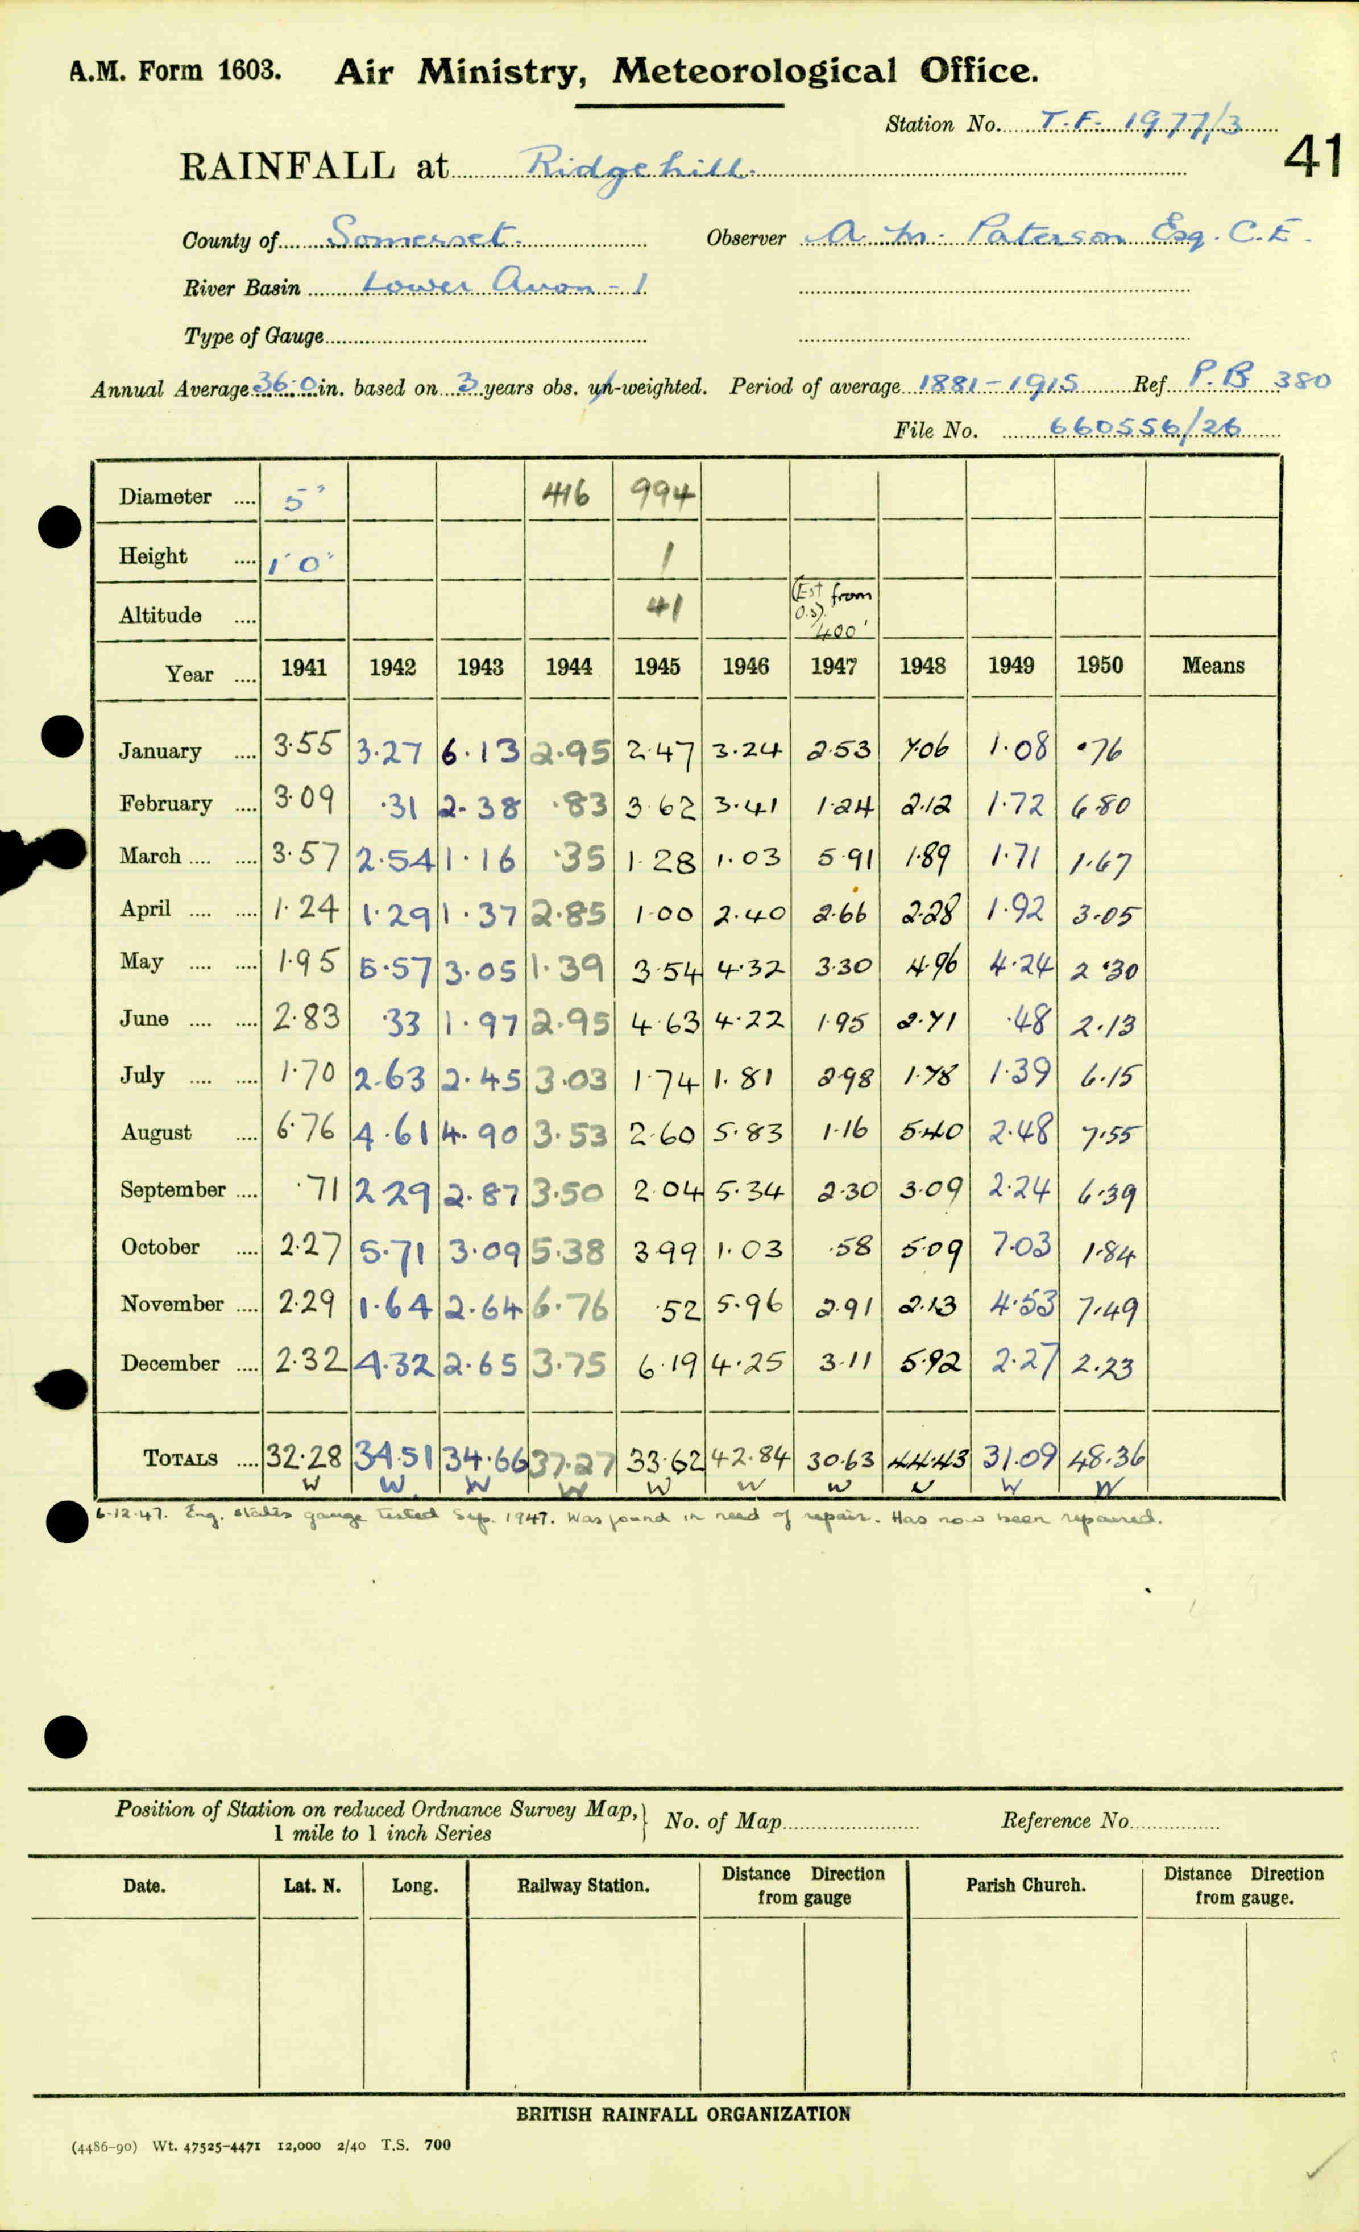 A.M. Form 1603. Air Ministry, Meteorological Office.
Station No. T.F. 1977/3
41
RAINFALL at Ridgehill.
County of Somerset. Observer A. M. Paterson Esq. C.E.
River Basin Lower Avon - 1
Type of Gauge
Annual Average 36.0 in. based on 3 years obs. un-weighted. Period of average 1881-1915 Ref. P.B 380
File No. 660556/26
Diameter .... 5" 416 994
Height .... 1' 0" 1
Altitude .... 41 (Est from O.S). 400'
Year .... 1941 1942 1943 1944 1945 1946 1947 1948 1949 1950 Means
January .... 3.55 3.27 6.13 2.95 2.47 3.24 2.53 7.06 1.08 .76
February .... 3.09 .31 2.38 .83 3.62 3.41 1.24 2.12 1.72 6.80
March .... .... 3.57 2.54 1.16 .35 1.28 1.03 5.91 1.89 1.71 1.67
April .... .... 1.24 1.29 1.37 2.85 1.00 2.40 2.66 2.28 1.92 3.05
May .... .... 1.95 5.57 3.05 1.39 3.54 4.32 3.30 4.96 4.24 2.30
June .... .... 2.83 .33 1.97 2.95 4.63 4.22 1.95 2.71 .48 2.13
July .... .... 1.70 2.63 2.45 3.03 1.74 1.81 2.98 1.78 1.39 6.15
August .... 6.76 4.61 4.90 3.53 2.60 5.83 1.16 5.40 2.48 7.55
September .... .71 2 29 2.87 3.50 2.04 5.34 2.30 3.09 2.24 6.39
October .... 2.27 5.71 3.09 5.38 3.99 1.03 .58 5.09 7.03 1.84
November .... 2.29 1.64 2.64 6.76 .52 5.96 2.91 2.13 4.53 7.49
December .... 2.32 4.32 2.65 3.75 6.19 4.25 3.11 5.92 2.27 2.23
TOTALS .... 32.28 34.51 34.66 37.27 33.62 42.84 30.63 44.43 31.09 48.36
W W W W W W W W W W
6.12.47. Eng. states gauge tested Sep. 1947. Was found in need of repair. Has now been repaired.
Position of Station on reduced Ordnance Survey Map, } No. of Map Reference No.
1 mile to 1 inch Series
Date. Lat. N. Long. Railway Station. Distance Direction from gauge Parish Church. Distance Direction from gauge.
BRITISH RAINFALL ORGANIZATION
(4486-90) Wt. 47525-4471 12,000 2/40 T.S. 700